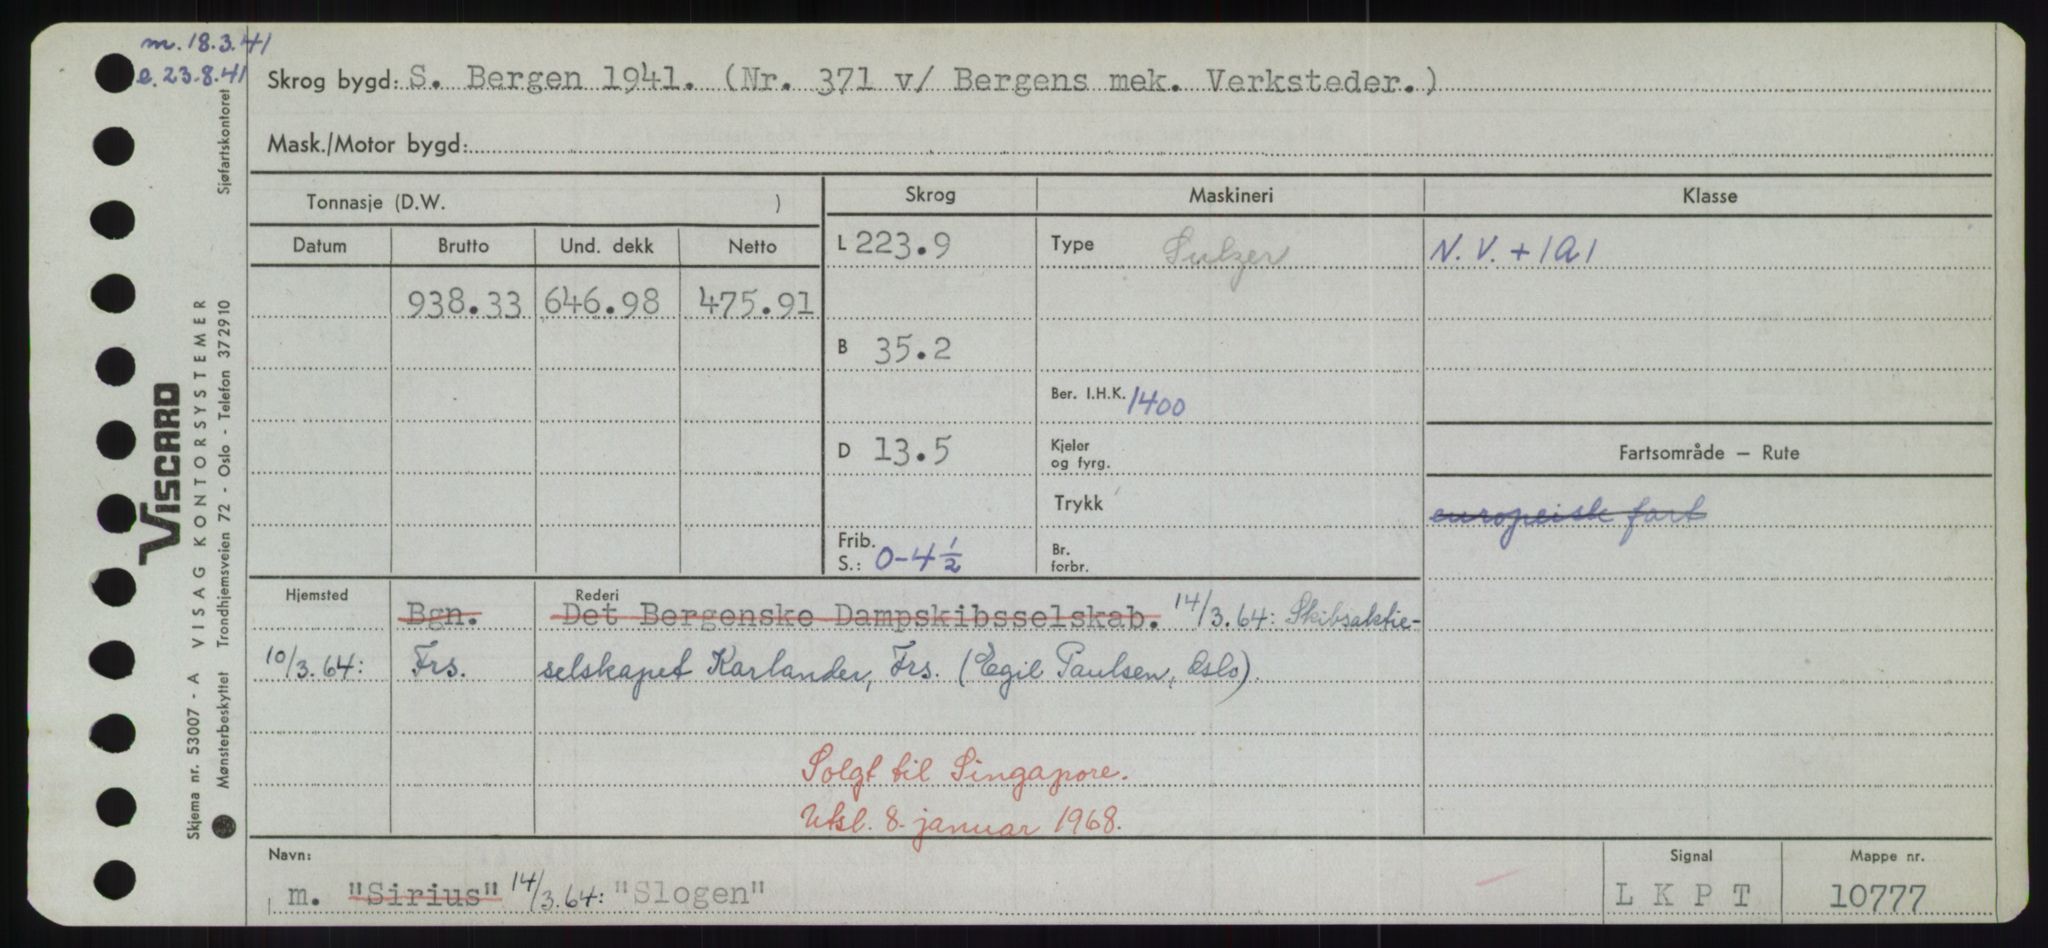 m. 18.3.41
e. 23.8.41
Skrog bygd: S. Bergen 1941. (Nr. 371 v/ Bergens mek. Verksteder.)
Mask./Motor bygd:
Tonnasje (D.W. )
Skrog
Maskineri
Klasse
Datum
Brutto
Und. dekk
Netto
L 223.9
Type Sulzer
N. V. + 1A1
938.33
646.98
475.91
B 35.2
Ber. I.H.K. 1400
D 13.5
Kjeler
og fyrg.
Fartsområde – Rute
Trykk
europeisk fart
Frib.
S.: 0-4½
Br.
forbr.
Hjemsted
Rederi
Bgn.
Det Bergenske Dampskibsselskab. 14/3.64: Skibsaktie-
10/3.64: Frs. selskapet Karlander, Frs. (Egil Paulsen, Oslo).
Solgt til Singapore.
Utsl. 8. januar 1968.
Navn:
m. "Sirius" 14/3.64: "Slogen"
Signal
L K P T
Mappe nr.
10777
VISCARD
Skjema nr. 53007 - A VISAG KONTORSYSTEMER
Mønsterbeskyttet Trondhjemsveien 72 - Oslo - Telefon 372910
Sjøfartskontoret